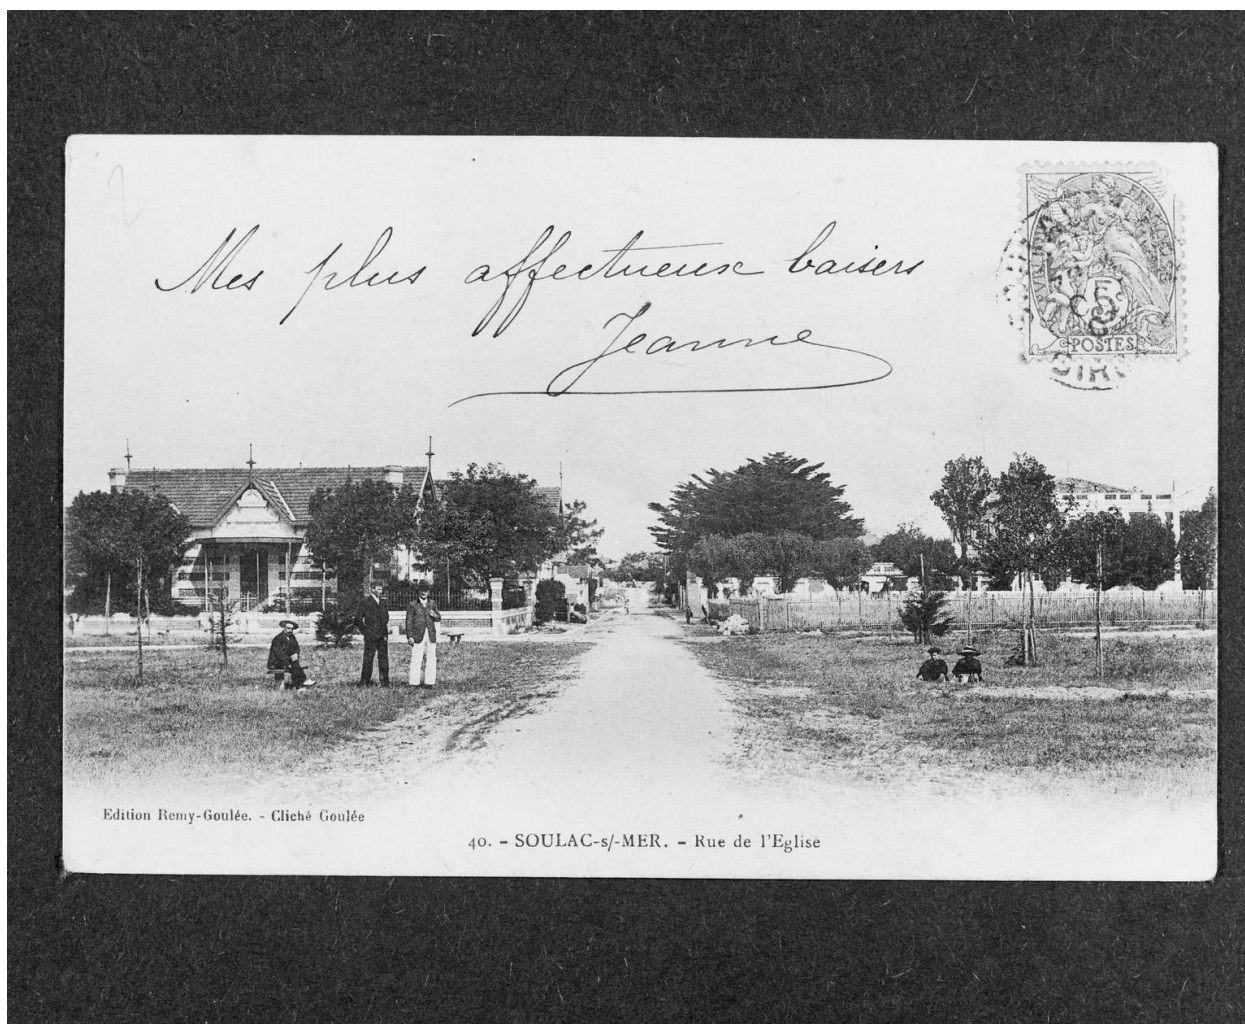 Mes plus affectueux baisers
Jeanne
5
POSTES
Edition Remy-Goulée. - Cliché Goulée
40. - SOULAC-s/-MER. - Rue de l'Eglise